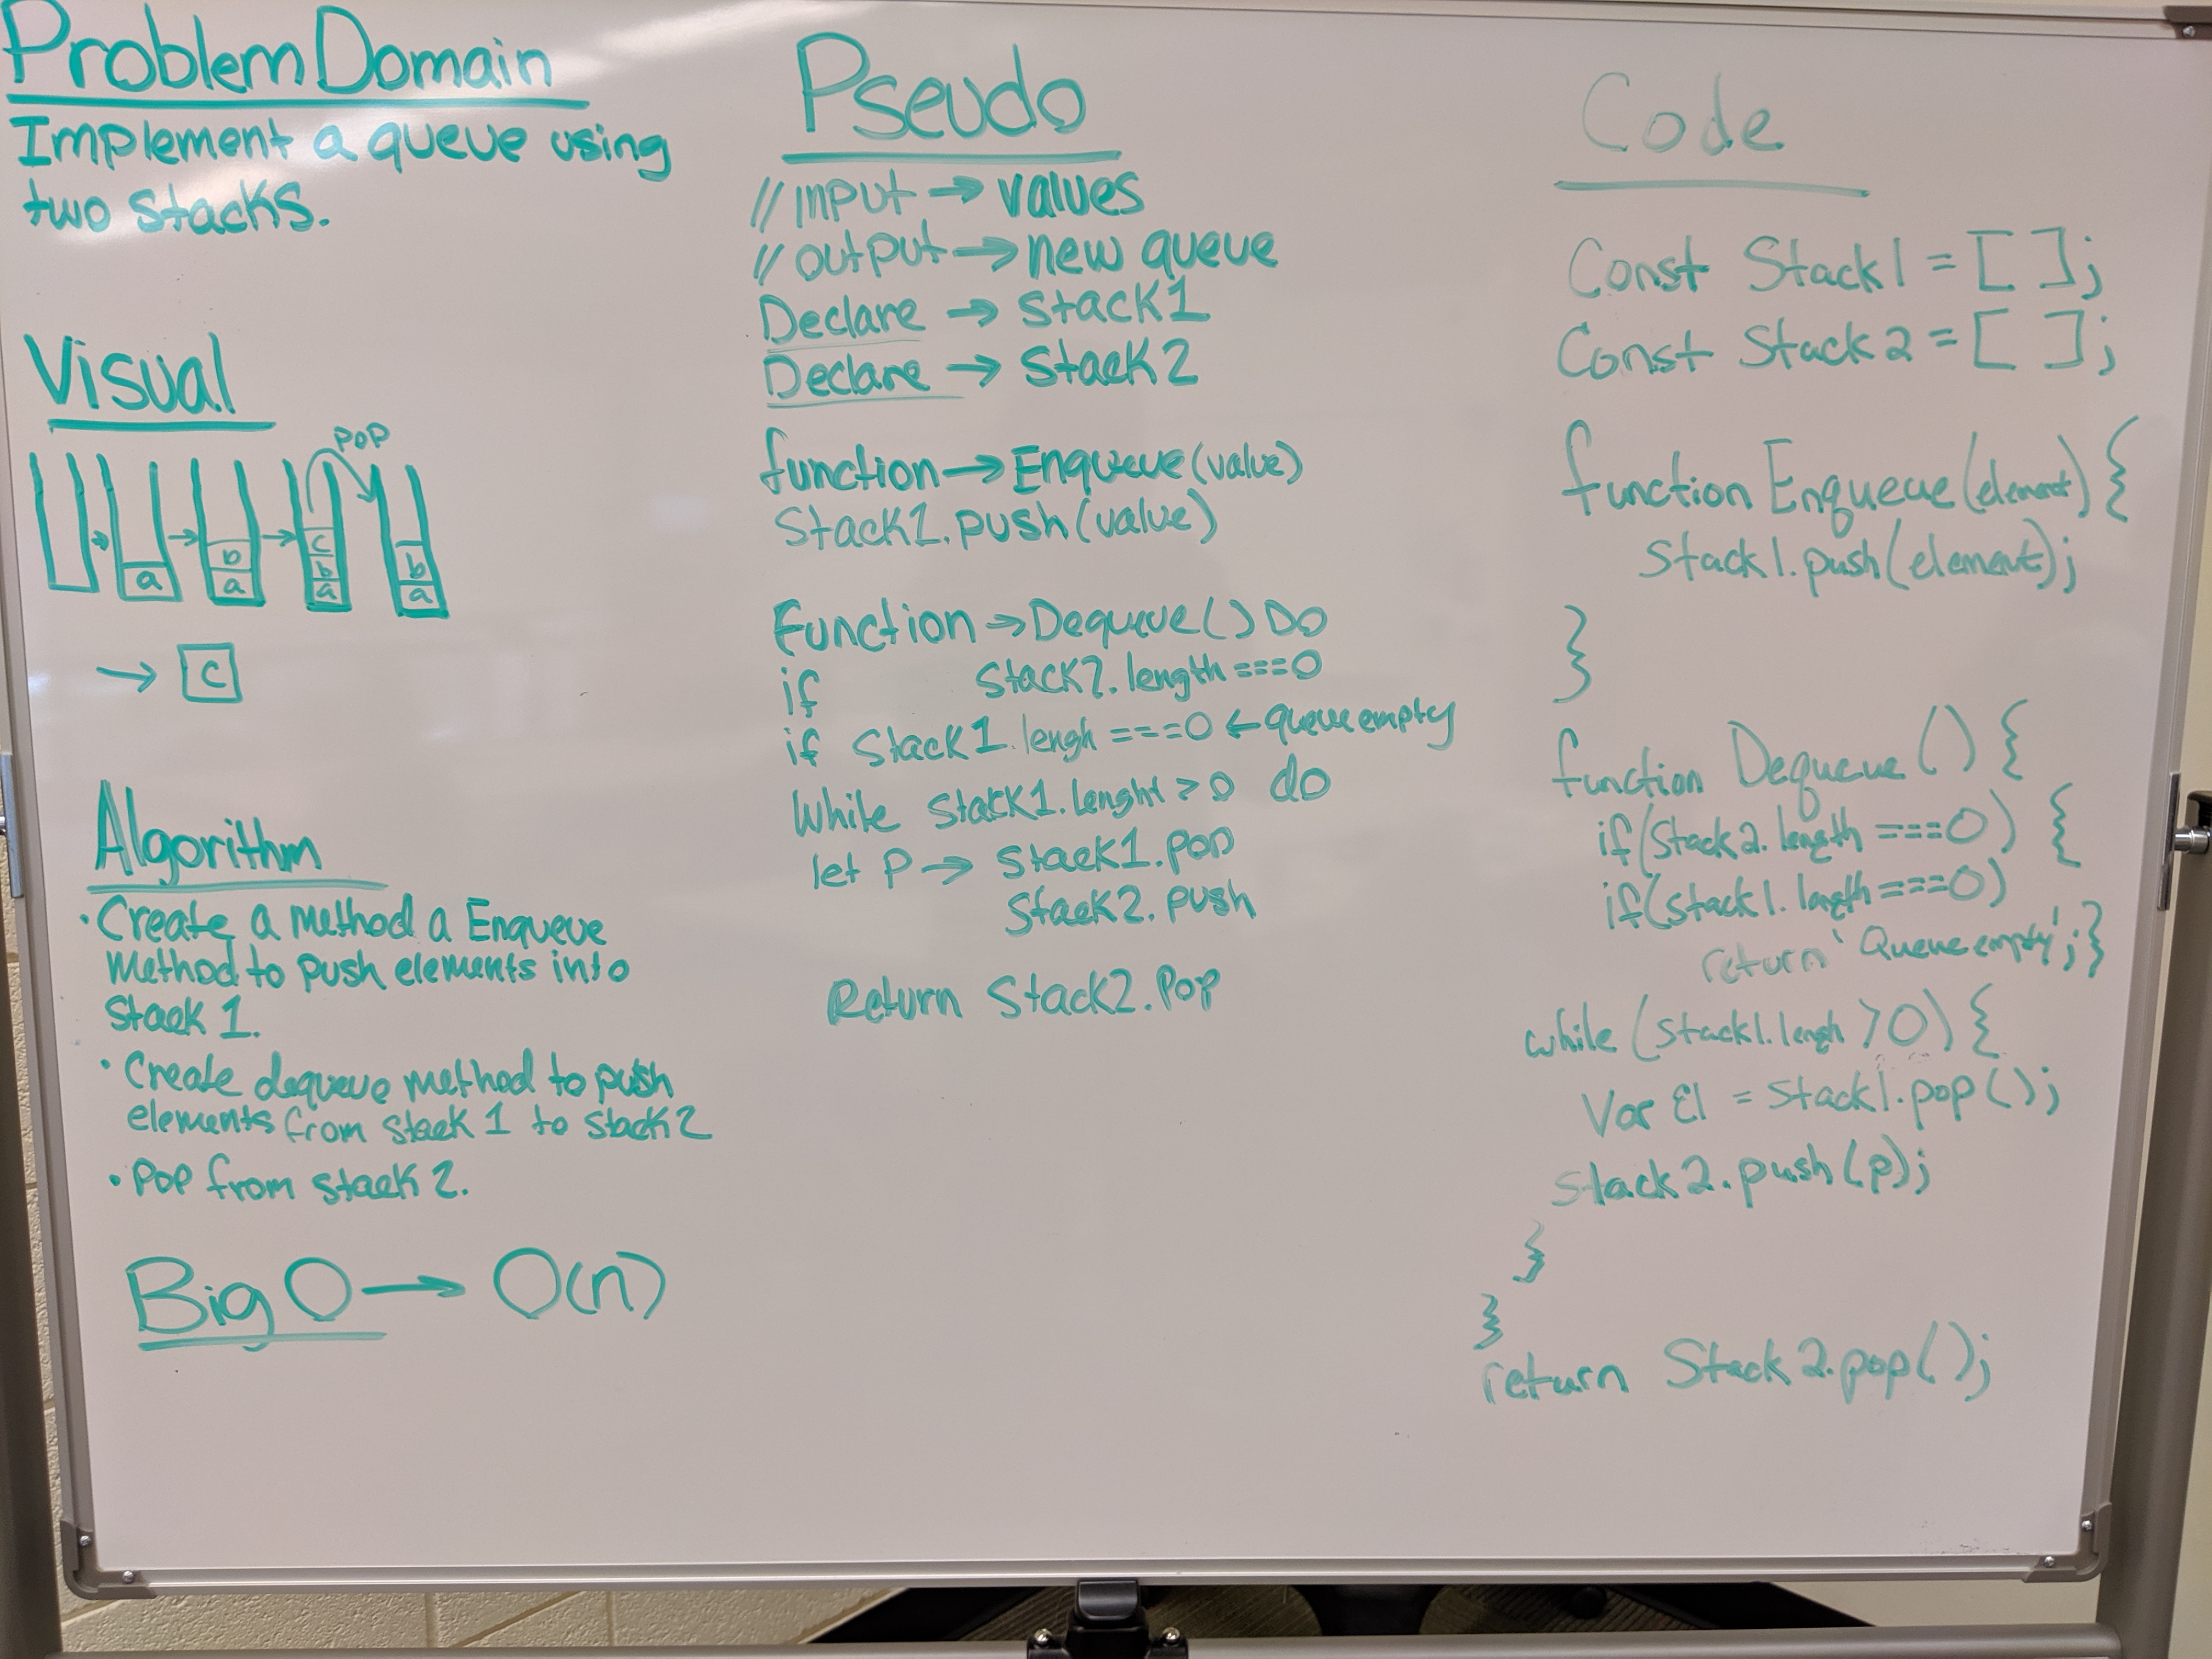 Problem Domain
Implement a queue using
two stacks.
Visual
POP
a
b
a
c
b
a
b
a
→ c
Algorithm
• Create a method a Enqueue
method to push elements into
stack 1.
• Create dequeue method to push
elements from stack 1 to stack 2
• Pop from stack 2.
Big O → O(n)
Pseudo
// input → values
// output → new queue
Declare → stack1
Declare → stack2
function → Enqueue(value)
Stack1.push(value)
Function → Dequeue() Do
if stack2.length ===0
if Stack1.lengh ===0 ← queue empty
While stack1.lenght > 0 do
let P → stack1.pop
stack2.push
Return Stack2.Pop
Code
Const Stack1 = [ ];
Const Stack2 = [ ];
function Enqueue(element) {
stack1.push(element);
}
function Dequeue() {
if(stack2.length ===0) {
if(stack1.length ===0)
return 'Queue empty';}
while (stack1.lengh >0) {
Var El = stack1.pop();
stack2.push(p);
}
}
return Stack2.pop();